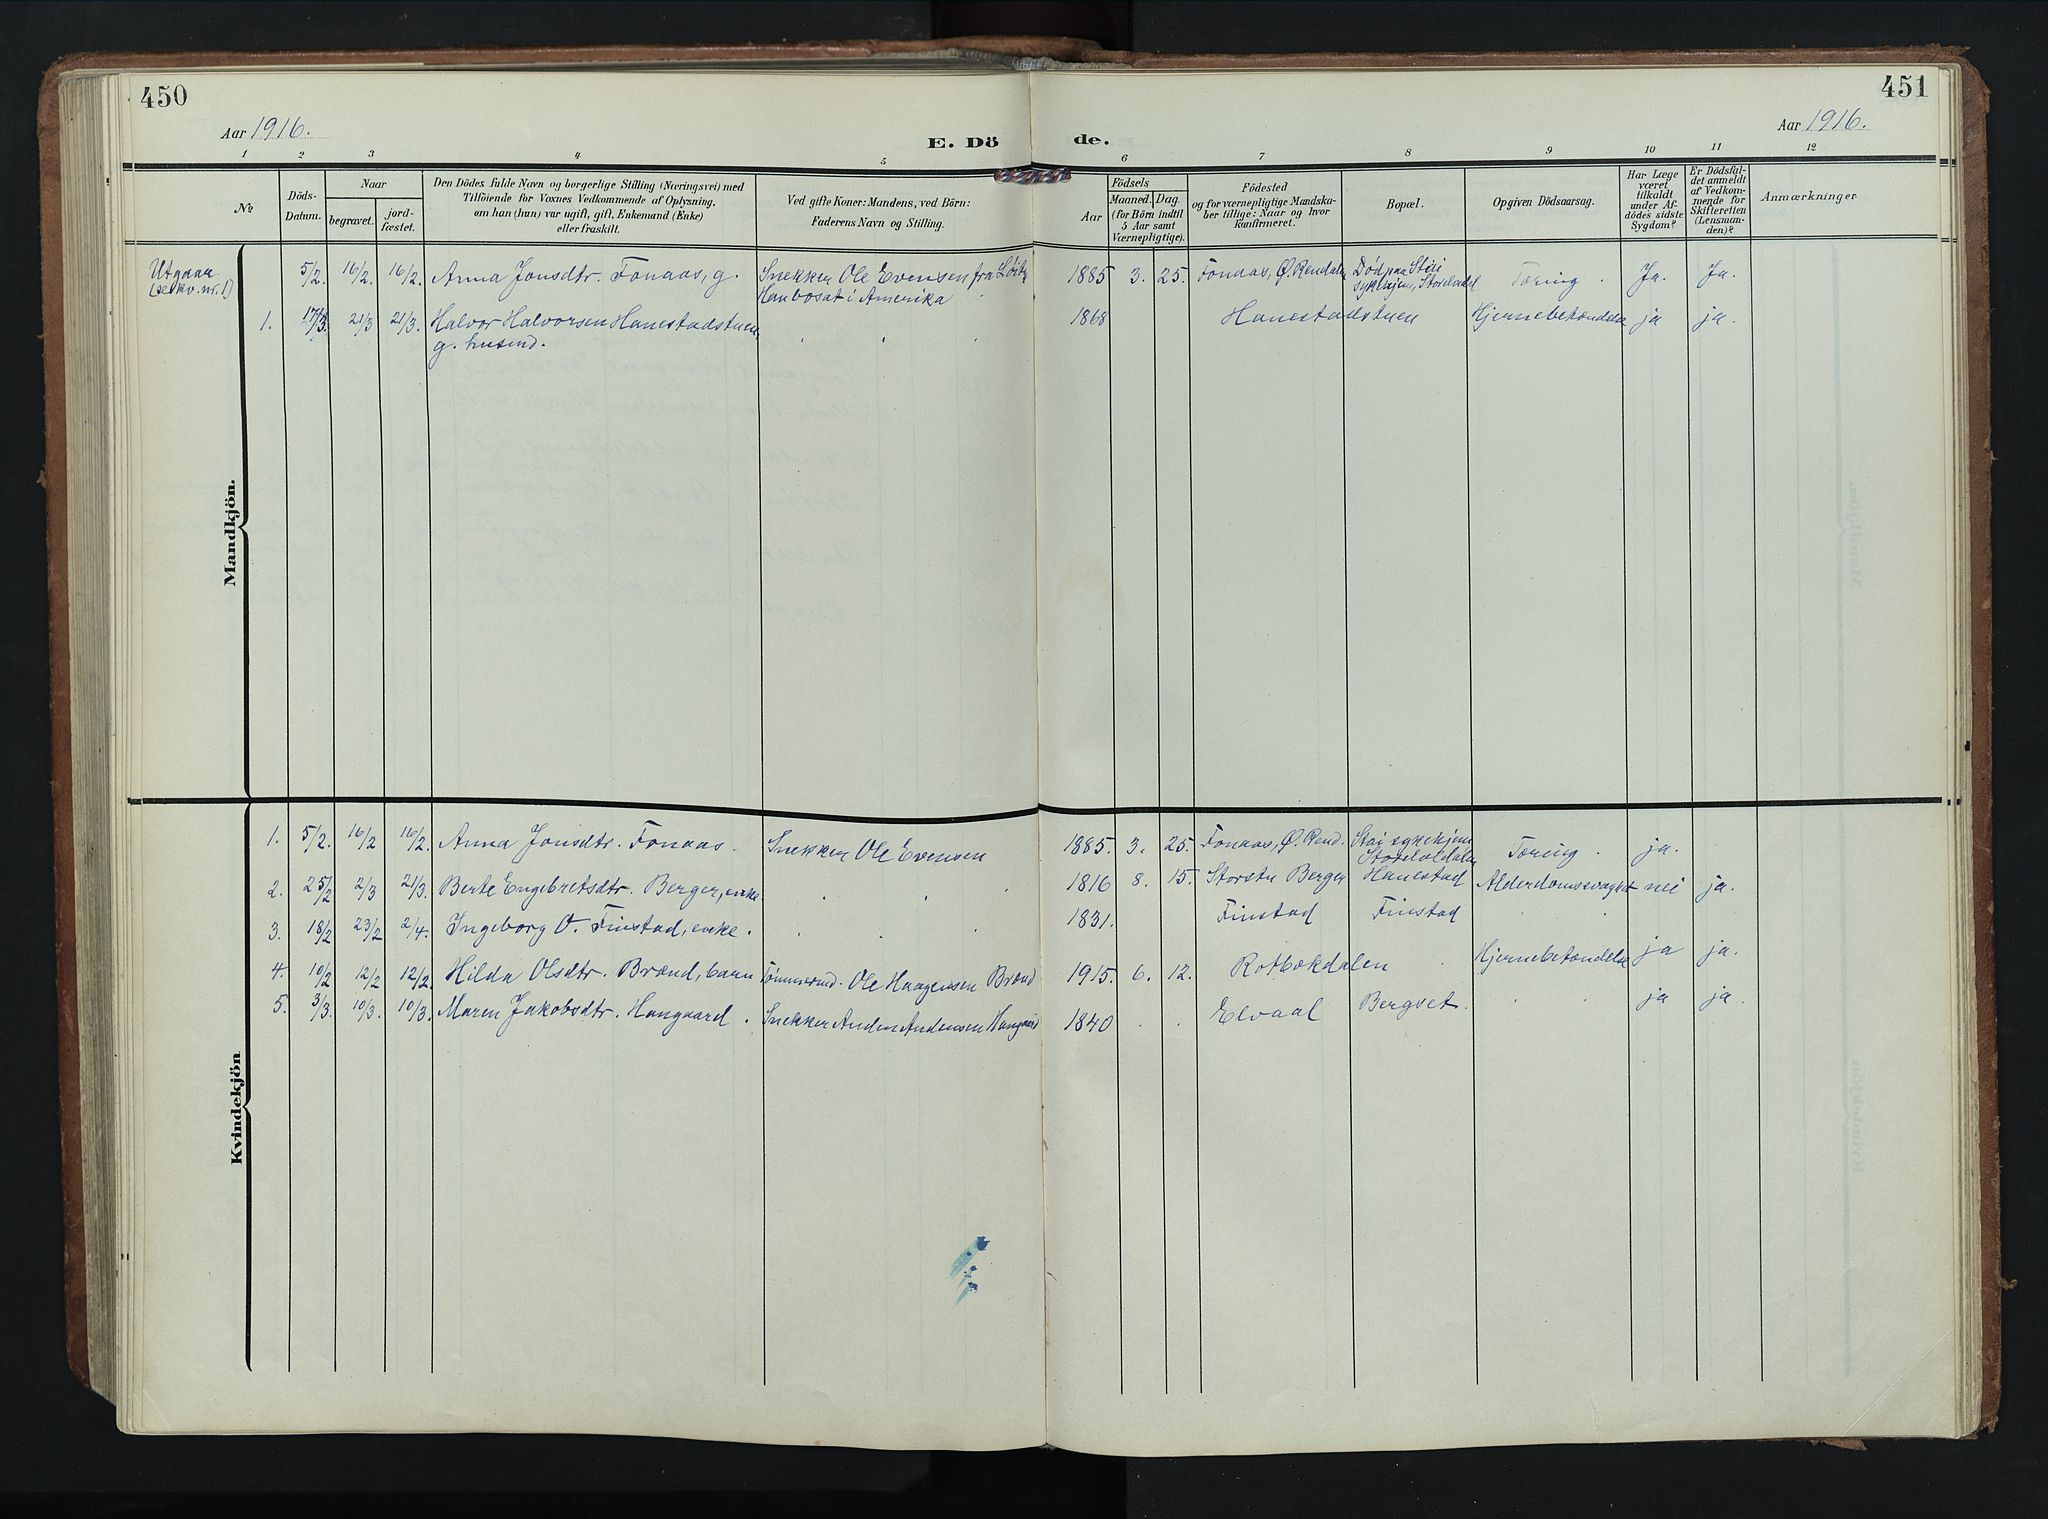 450
451
Aar 1916.
Aar 1916.
E. Dö
de.
1 2 3 4 5 6 7 8 9 10 11 12
No
Döds-
Datum.
Naar
begravet.
jord-
fæstet.
Den Dödes fulde Navn og borgerlige Stilling (Næringsvei) med
Tilföiende for Voxnes Vedkommende af Oplysning,
om han (hun) var ugift, gift, Enkemand (Enke)
eller fraskilt.
Ved gifte Koner: Mandens, ved Börn:
Faderens Navn og Stilling.
Aar
Födsels
Maaned. Dag
(for Börn indtil
5 Aar samt
Værnepligtige).
Födested
og for værnepligtige Mandska-
ber tillige: Naar og hvor
konfirmeret.
Bopæl.
Opgiven Dödsaarsag.
Har Læge
været
tilkaldt
under Af-
dödes sidste
Sygdom?
Er Dödsfal-
det anmeldt
af Vedkom-
mende for
Skifteretten
(Lensman-
den)?
Anmærkninger
Mandkjön.
Utgaar
(se kv. nr. 1)
5/2. 16/2. 16/2. Anna Jonsdtr. Fonaas, g.
Snekker Ole Evensen fra
Han bosat i Amerika
1885 3. 25. Fonaas, Ø. Rendalen
Død paa Stai
sykehjem, Storelvdal
Tæring. Ja. Ja.
1. 17/3. 21/3 21/3. Halvor Halvorsen Hanestadstuen,
g. husmd.
1868 Hanestadstuen Hjernebetændelse ja ja.
Kvindekjön
1. 5/2. 16/2 16/2. Anna Jonsdtr. Fonaas. Snekker Ole Evensen
1885. 3. 25. Fonaas, Ø. Rend. Stai sykehjem
Storelvdalen
Tæring. ja.
2. 25/2 2/3 21/3. Berte Engebretsdtr. Berger, enke
1816 8. 15. Storstu Berger Hanestad Alderdomssvaghet nei ja.
3. 18/2 23/2 2/4. Ingeborg O. Finstad, enke.
1831. Finstad Finstad
4. 10/2 12/2 12/2. Hilda Olsdtr. Brænd, barn Tømmermd. Ole Haagensen Brænd
1915. 6. 12. Rotbækdalen Hjernebetændelse ja ja.
5. 3/3. 10/3. 10/3. Maren Jakobsdtr. Haugaard. Snekker Anden Andensen Haugaard
1840 Elvaal Bergset. ja ja.